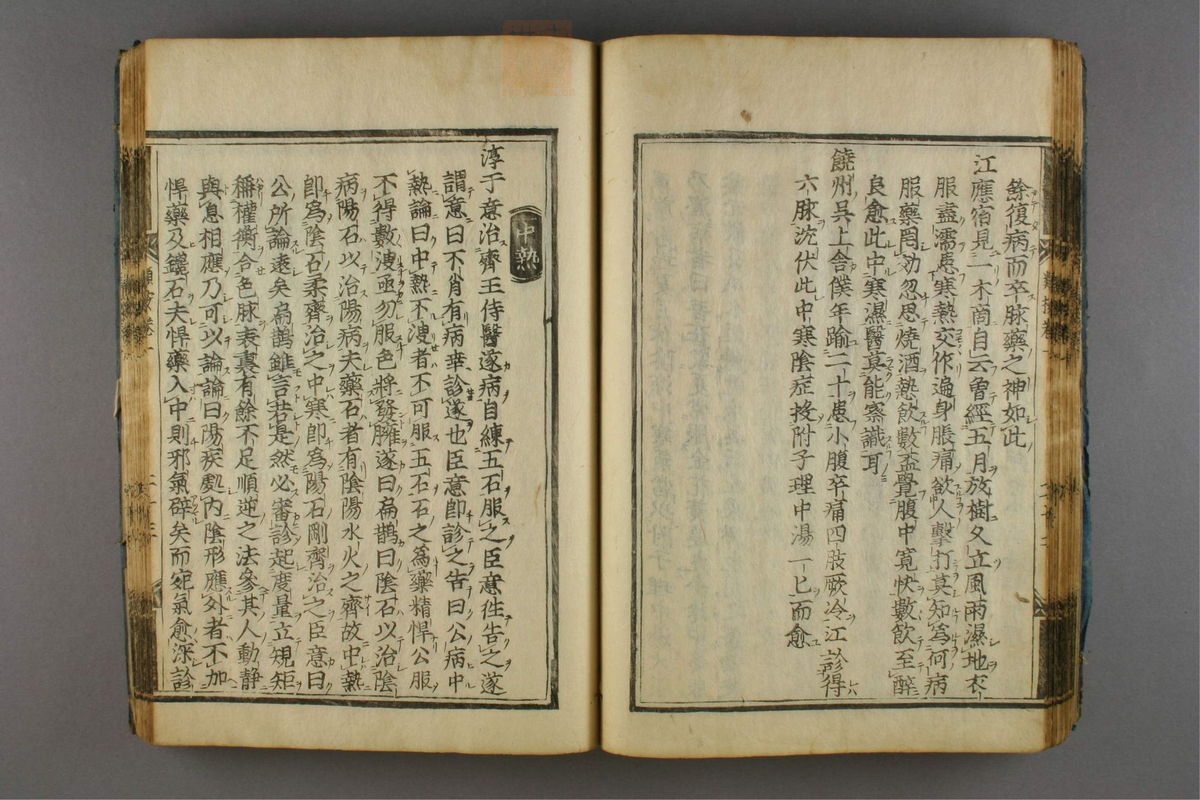 餘復病而卒脉藥之神如此
江應宿見一木商自云曾經五月放樹久立風雨濕地衣
服盡濡患寒熱交作遍身脹痛欲人擊打莫知爲何病
服藥罔効忽思燒酒熱飲數盃覺腹中寛快數飲至醉
良愈此中寒濕醫莫能察識耳
饒州呉上舍僕年踰二十患小腹卒痛四肢厥冷江診得
六脉沈伏此中寒陰症投附子理中湯一匕而愈
中熱
淳于意治齊王侍醫遂病自練五石服之臣意往告之遂
謂意曰不肖有病幸診遂也臣意即診之告曰公病中
熱論曰中熱不溲者不可服五石石之爲藥精悍公服
不得數溲亟勿服色將發臃遂曰扁鵲曰陰石以治陰
病陽石以治陽病夫藥石者有陰陽水火之齊故中熱
即爲陰石柔齊治之中寒即爲陽石剛齊治之臣意曰
公所論遠矣扁鵲雖言若是然必審診起度量立規矩
稱權衡合色脉表裏有餘不足順逆之法參其人動靜
與息相應乃可以論論曰陽疾處内陰形應外者不加
悍藥及鑱石夫悍藥入中則邪氣辟矣而宛氣愈深診